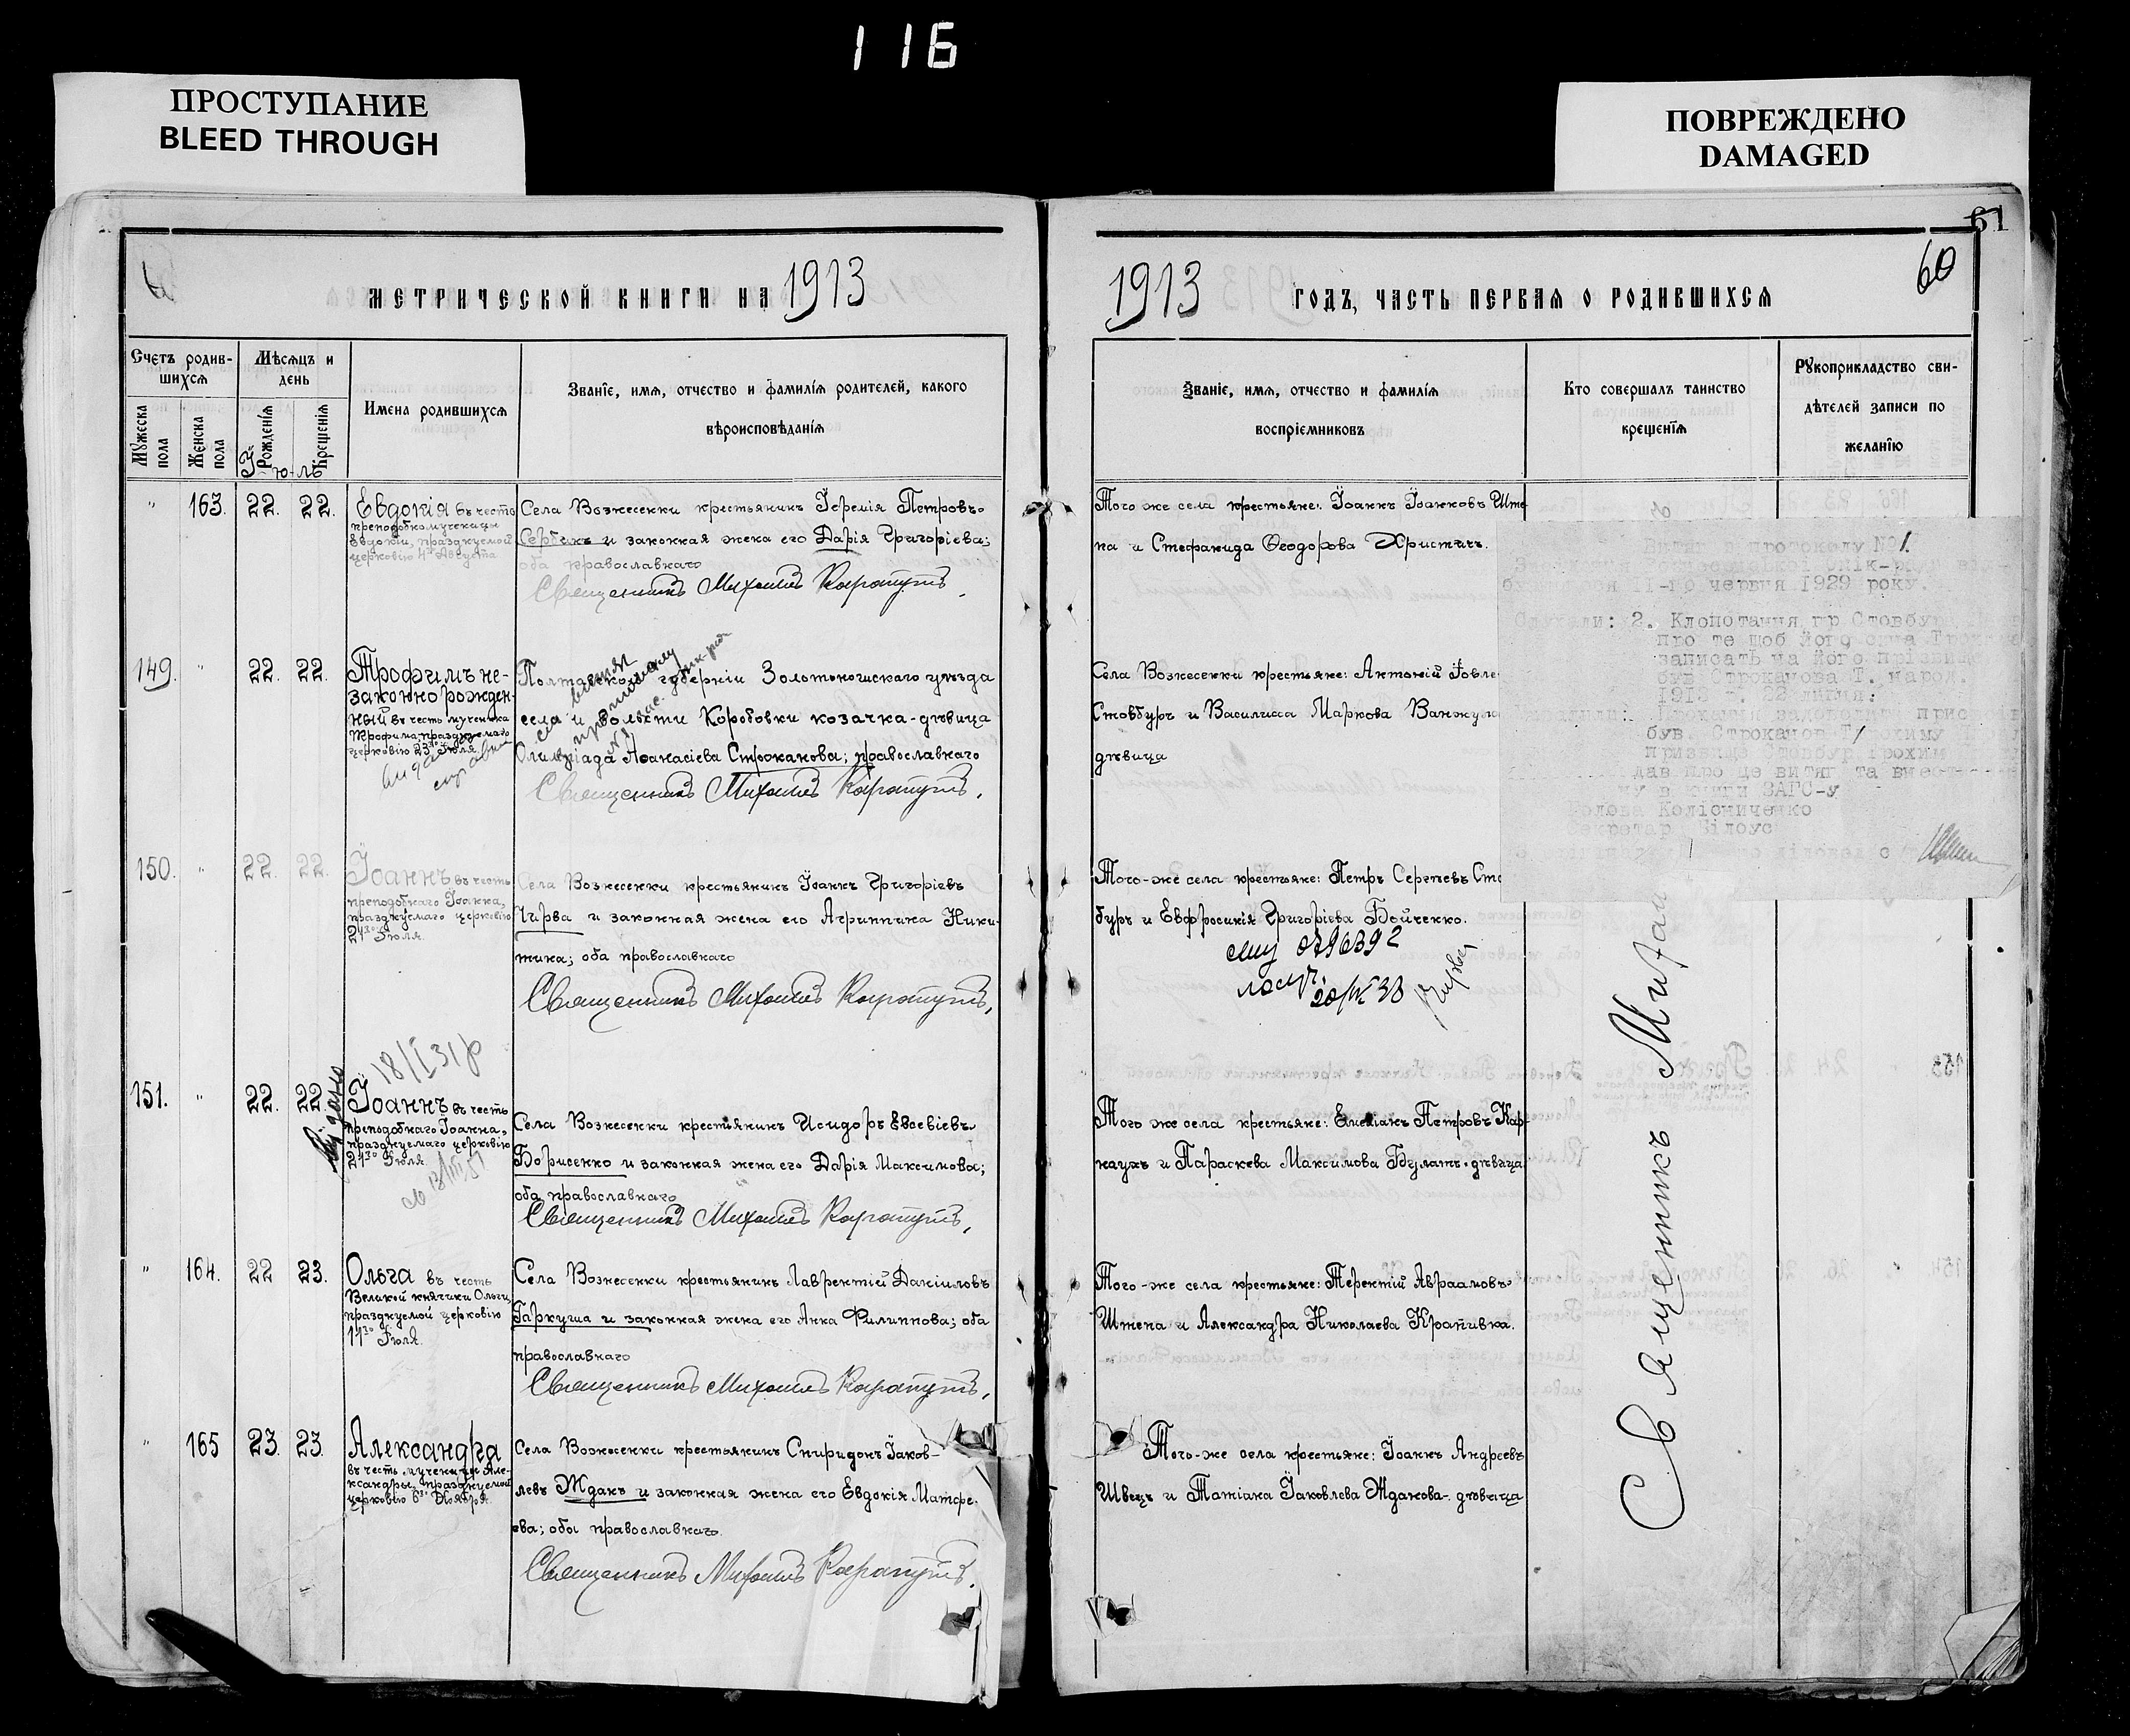 116
ПРОСТУПАНИЕ
BLEED THROUGH
ПОВРЕЖДЕНО
DAMAGED
61
60
МЕТРИЧЕСКОЙ КНИГИ НА 1913
Счетъ родив-
шихся
Мѣсяцъ и
день
Мужеска
пола
Женска
пола
Рожденія
Крещенія
Имена родившихся
Званіе, имя, отчество и фамилія родителей, какого
вѣроисповѣданія
Ію-ль
" 163. 22. 22.
Евдокія въ честь
преподобномученицы
Евдокіи, празднуемой
церковію 4го Августа
Села Вознесенки крестьянинъ Іеремія Петровъ
Сербинъ и законная жена его Дарія Григоріева;
оба православнаго
Священникъ Михаилъ Карапутъ.
149. " 22. 22.
Трофимъ не-
законно рожден-
ный въ честь мученика
Трофима, празднуемаго
церковію 23го Іюля.
Полтавской губерніи Золотоношскаго уѣзда
села и волости Коробовки козачка-дѣвица
Олимпіада Аѳанасіева Строканова; православнаго
Священникъ Михаилъ Карапутъ.
150. " 22. 22.
Іоаннъ въ честь
преподобнаго Іоанна,
празднуемаго церковію
21го Іюля.
Села Вознесенки крестьянинъ Іоаннъ Григоріевъ
Чирва и законная жена его Агриппина Ники-
тина; оба православнаго
Священникъ Михаилъ Карапутъ.
18/I 31р
151. " 22. 22.
Іоаннъ въ честь
преподобнаго Іоанна,
празднуемаго церковію
21го Іюля
Села Вознесенки крестьянинъ Исидоръ Евсевіевъ
Борисенко и законная жена его Дарія Максимова;
оба православнаго
Священникъ Михаилъ Карапутъ.
" 164. 22 23.
Ольга въ честь
Великой княгини Ольги,
празднуемой церковію
11го Іюля.
Села Вознесенки крестьянинъ Лаврентій Даніиловъ
Гаркуша и законная жена его Анна Филиппова; оба
православнаго
Священникъ Михаилъ Карапутъ.
" 165 23. 23.
Александра
въ честь мученицы Але-
ксандры, празднуемой
церковію 6го Ноября.
Села Вознесенки крестьянинъ Спиридонъ Іаков-
левъ Жданъ и законная жена его Евдокія Матѳе-
ева; оба православнаго.
Священникъ Михаилъ Карапутъ.
1913 ГОДЪ, ЧАСТЬ ПЕРВАЯ О РОДИВШИХСЯ
Званіе, имя, отчество и фамилія
воспріемниковъ
Кто совершалъ таинство
крещенія
Рукоприкладство сви-
дѣтелей записи по
желанію
Того же села крестьяне: Іоаннъ Іоанновъ Ште-
па и Стефанида Ѳеодорова Христичъ.
Села Вознесенки крестьяне: Антоній Іовле
Стовбуръ и Василисса Маркова Ванжула
дѣвица
Того-же села крестьяне: Петръ Сергѣевъ Сто
буръ и Евфросинія Григоріева Бойченко.
Того же села крестьяне: Емеліанъ Петровъ Кар-
наухъ и Параскева Максимова Булатъ-дѣвица
Того-же села крестьяне: Терентій Авраамовъ
Штепа и Александра Николаева Крапивка.
Того-же села крестьяне: Іоаннъ Андреевъ
Швецъ и Татіана Іаковлева Жданова-дѣвица
протоколу №1.
11-го червня 1929 року.
2. Клопотання гр Стовбур
про те щоб його сина
записать на його прізвище
був Строканова Т. народ.
1913 р. 22 липня.
був. Строканов
призвище Стовбур Трохим
про це витяг та внест
в книги ЗАГС-у
Голова Колісниченко
Секретар Білоус
Священникъ Михаи